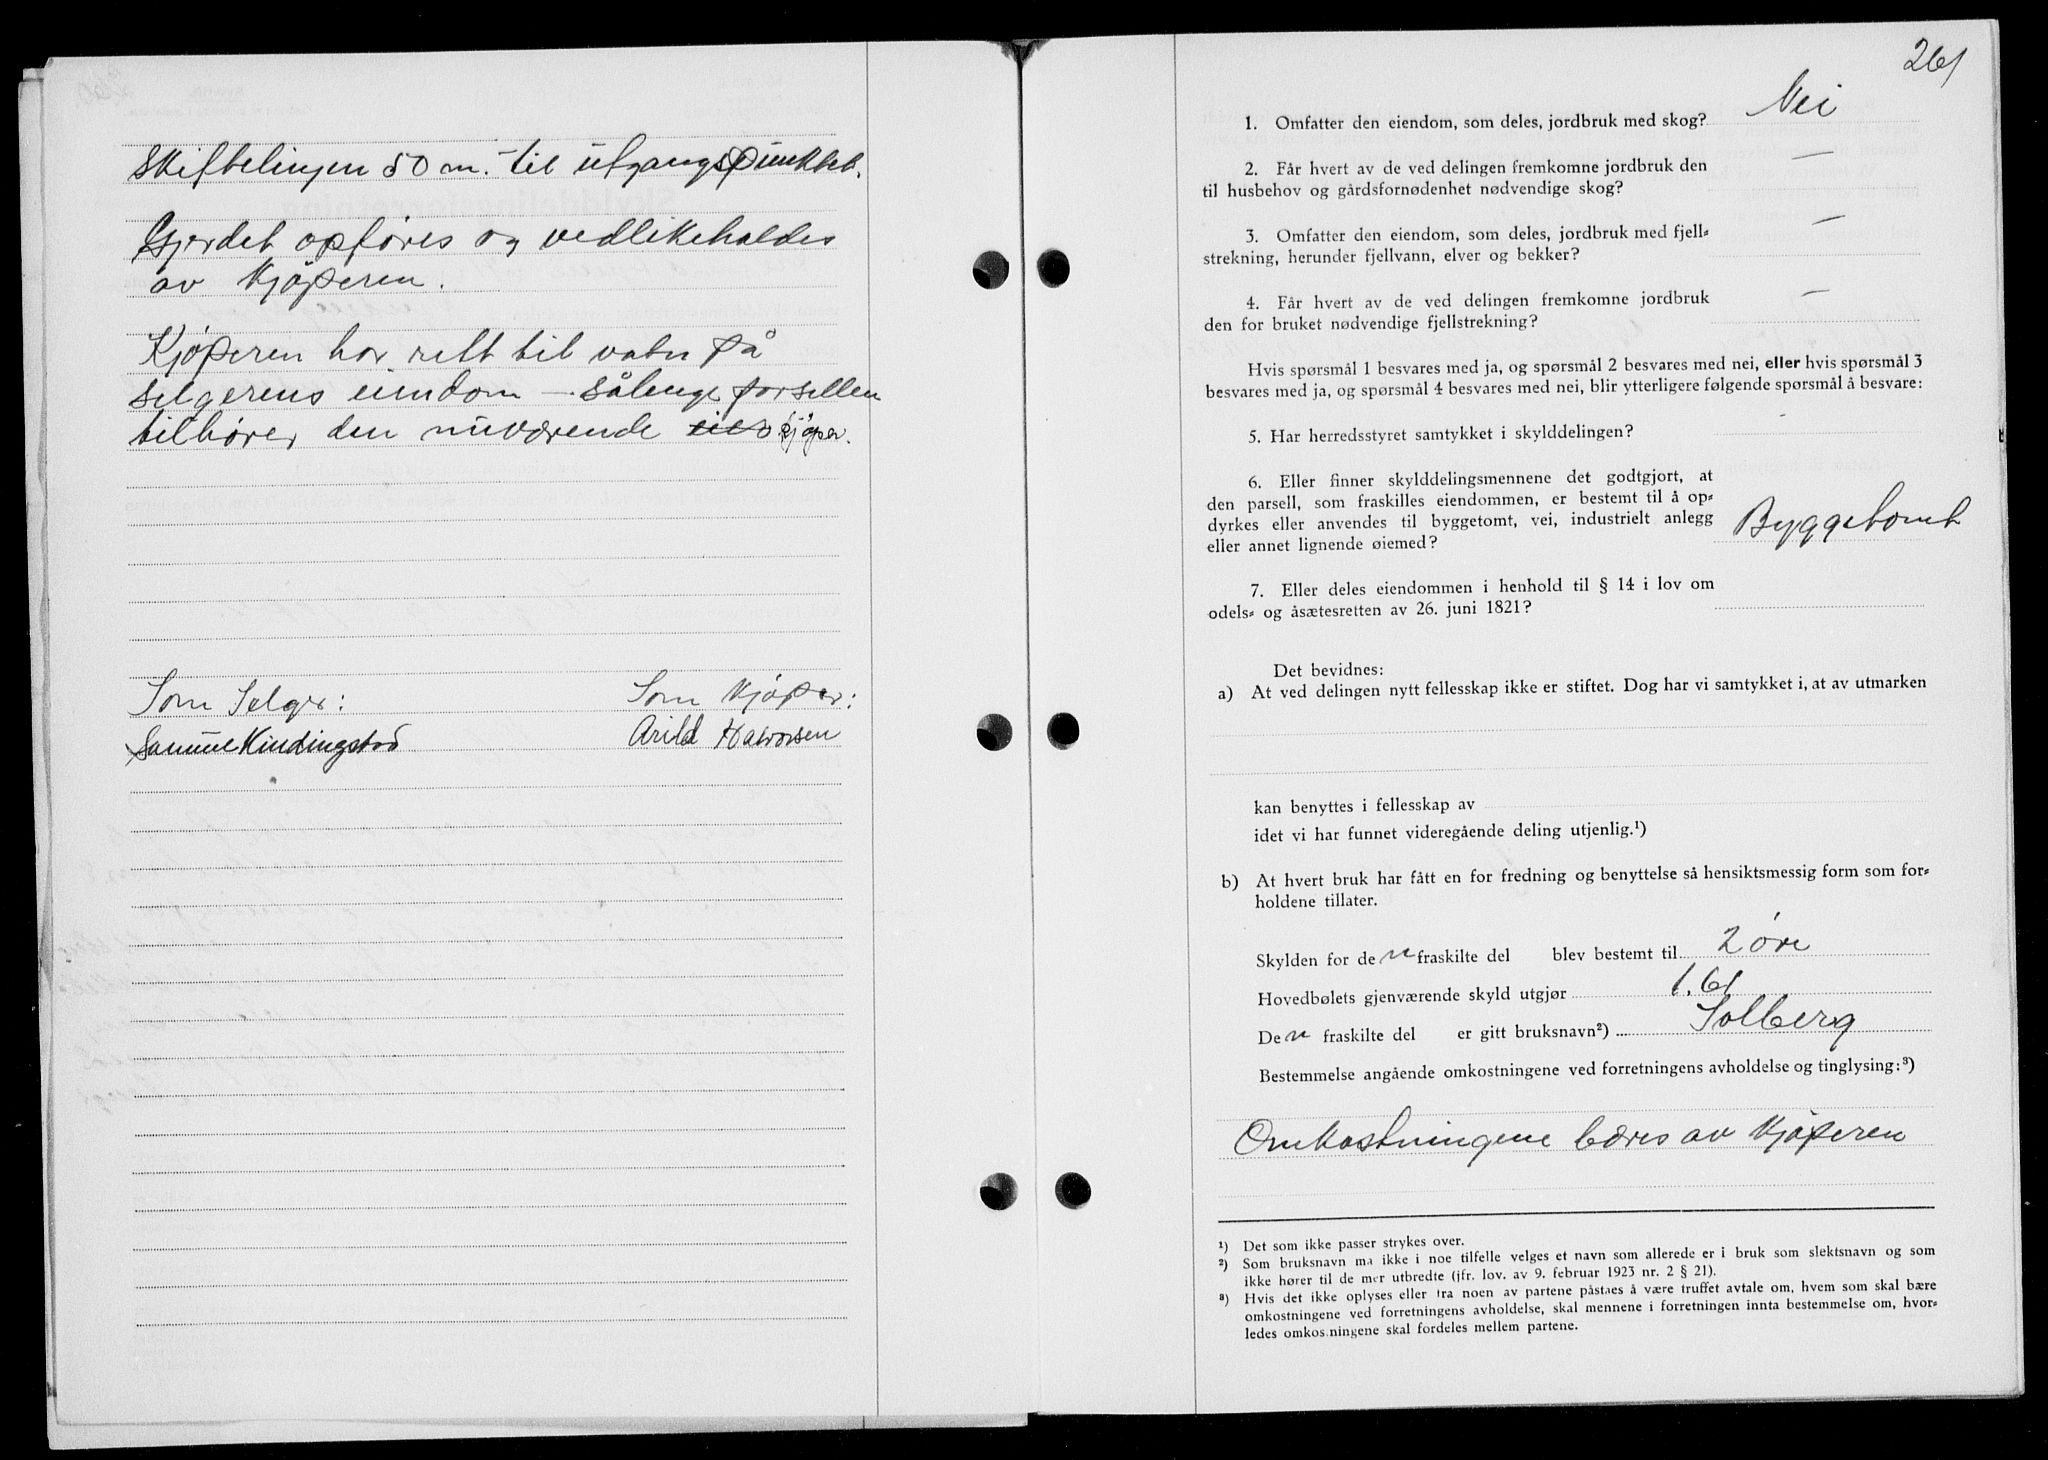 skiftelinjen 50 m. til utgangspunktet.
Gjerdet opføres og vedlikeholdes
av kjøperen.
Kjøperen har rett til vatn på
selgerens eiendom – sålenge parsellen
tilhører den nuværende eier kjøper.
Som Selger: Som kjøper:
Samuel Kindingstad Arild Halvorsen
261
1. Omfatter den eiendom, som deles, jordbruk med skog? Nei
2. Får hvert av de ved delingen fremkomne jordbruk den
til husbehov og gårdsfornødenhet nødvendige skog? —
3. Omfatter den eiendom, som deles, jordbruk med fjell-
strekning, herunder fjellvann, elver og bekker? —
4. Får hvert av de ved delingen fremkomne jordbruk
den for bruket nødvendige fjellstrekning? —
Hvis spørsmål 1 besvares med ja, og spørsmål 2 besvares med nei, eller hvis spørsmål 3
besvares med ja, og spørsmål 4 besvares med nei, blir ytterligere følgende spørsmål å besvare:
5. Har herredsstyret samtykket i skylddelingen?
6. Eller finner skylddelingsmennene det godtgjort, at
den parsell, som fraskilles eiendommen, er bestemt til å op-
dyrkes eller anvendes til byggetomt, vei, industrielt anlegg
eller annet lignende øiemed? Byggetomt
7. Eller deles eiendommen i henhold til § 14 i lov om
odels- og åsætesretten av 26. juni 1821?
Det bevidnes:
a) At ved delingen nytt fellesskap ikke er stiftet. Dog har vi samtykket i, at av utmarken
kan benyttes i fellesskap av
idet vi har funnet videregående deling utjenlig.¹)
b) At hvert bruk har fått en for fredning og benyttelse så hensiktsmessig form som for-
holdene tillater.
Skylden for den fraskilte del blev bestemt til 2 øre
Hovedbølets gjenværende skyld utgjør 1.61
Den fraskilte del er gitt bruksnavn²) Solberg
Bestemmelse angående omkostningene ved forretningens avholdelse og tinglysing:³)
Omkostningene bæres av kjøperen
¹) Det som ikke passer strykes over.
²) Som bruksnavn ma ikke i noe tilfelle velges et navn som allerede er i bruk som slektsnavn og som
ikke hører til de mer utbredte (jfr. lov. av 9. februar 1923 nr. 2 § 21).
³) Hvis det ikke oplyses eller fra noen av partene påstaes å være truffet avtale om, hvem som skal bære
omkostningene ved forretningens avholdelse, skal mennene i forretningen innta bestemmelse om, hvor-
ledes omkostningene skal fordeles mellem partene.